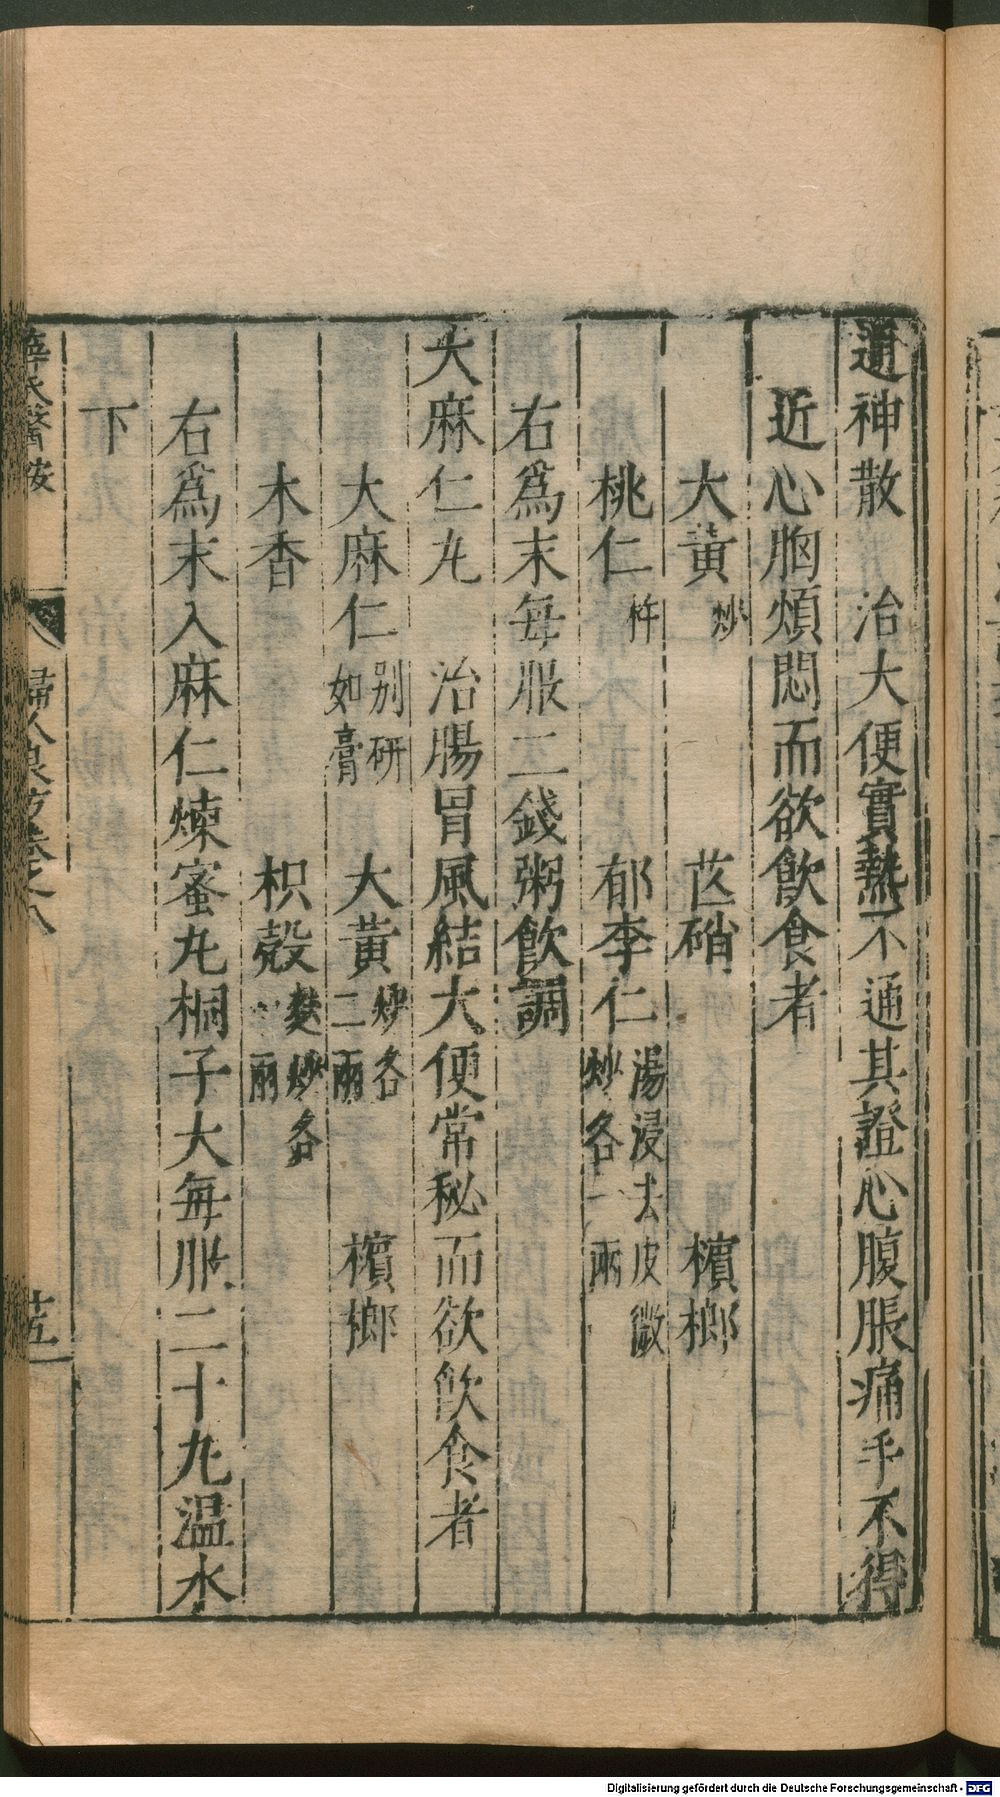 通神散　治大便實熱不通其證心腹脹痛手不得
近心胸煩悶而欲飮食者
大黃炒　芒硝　檳榔
桃仁杵　郁李仁湯浸去皮微炒各一兩
右爲末每服二錢粥飮調
大麻仁丸　治腸胃風結大便常秘而欲飮食者
大麻仁别研如膏　大黃炒各二兩　檳榔
木香　枳殼麩炒各一兩
右爲末入麻仁煉蜜丸桐子大每服二十丸温水
下
薛氏醫按　婦人良方卷之八　
Digitalisierung gefördert durch die Deutsche Forschungsgemeinschaft - DFG